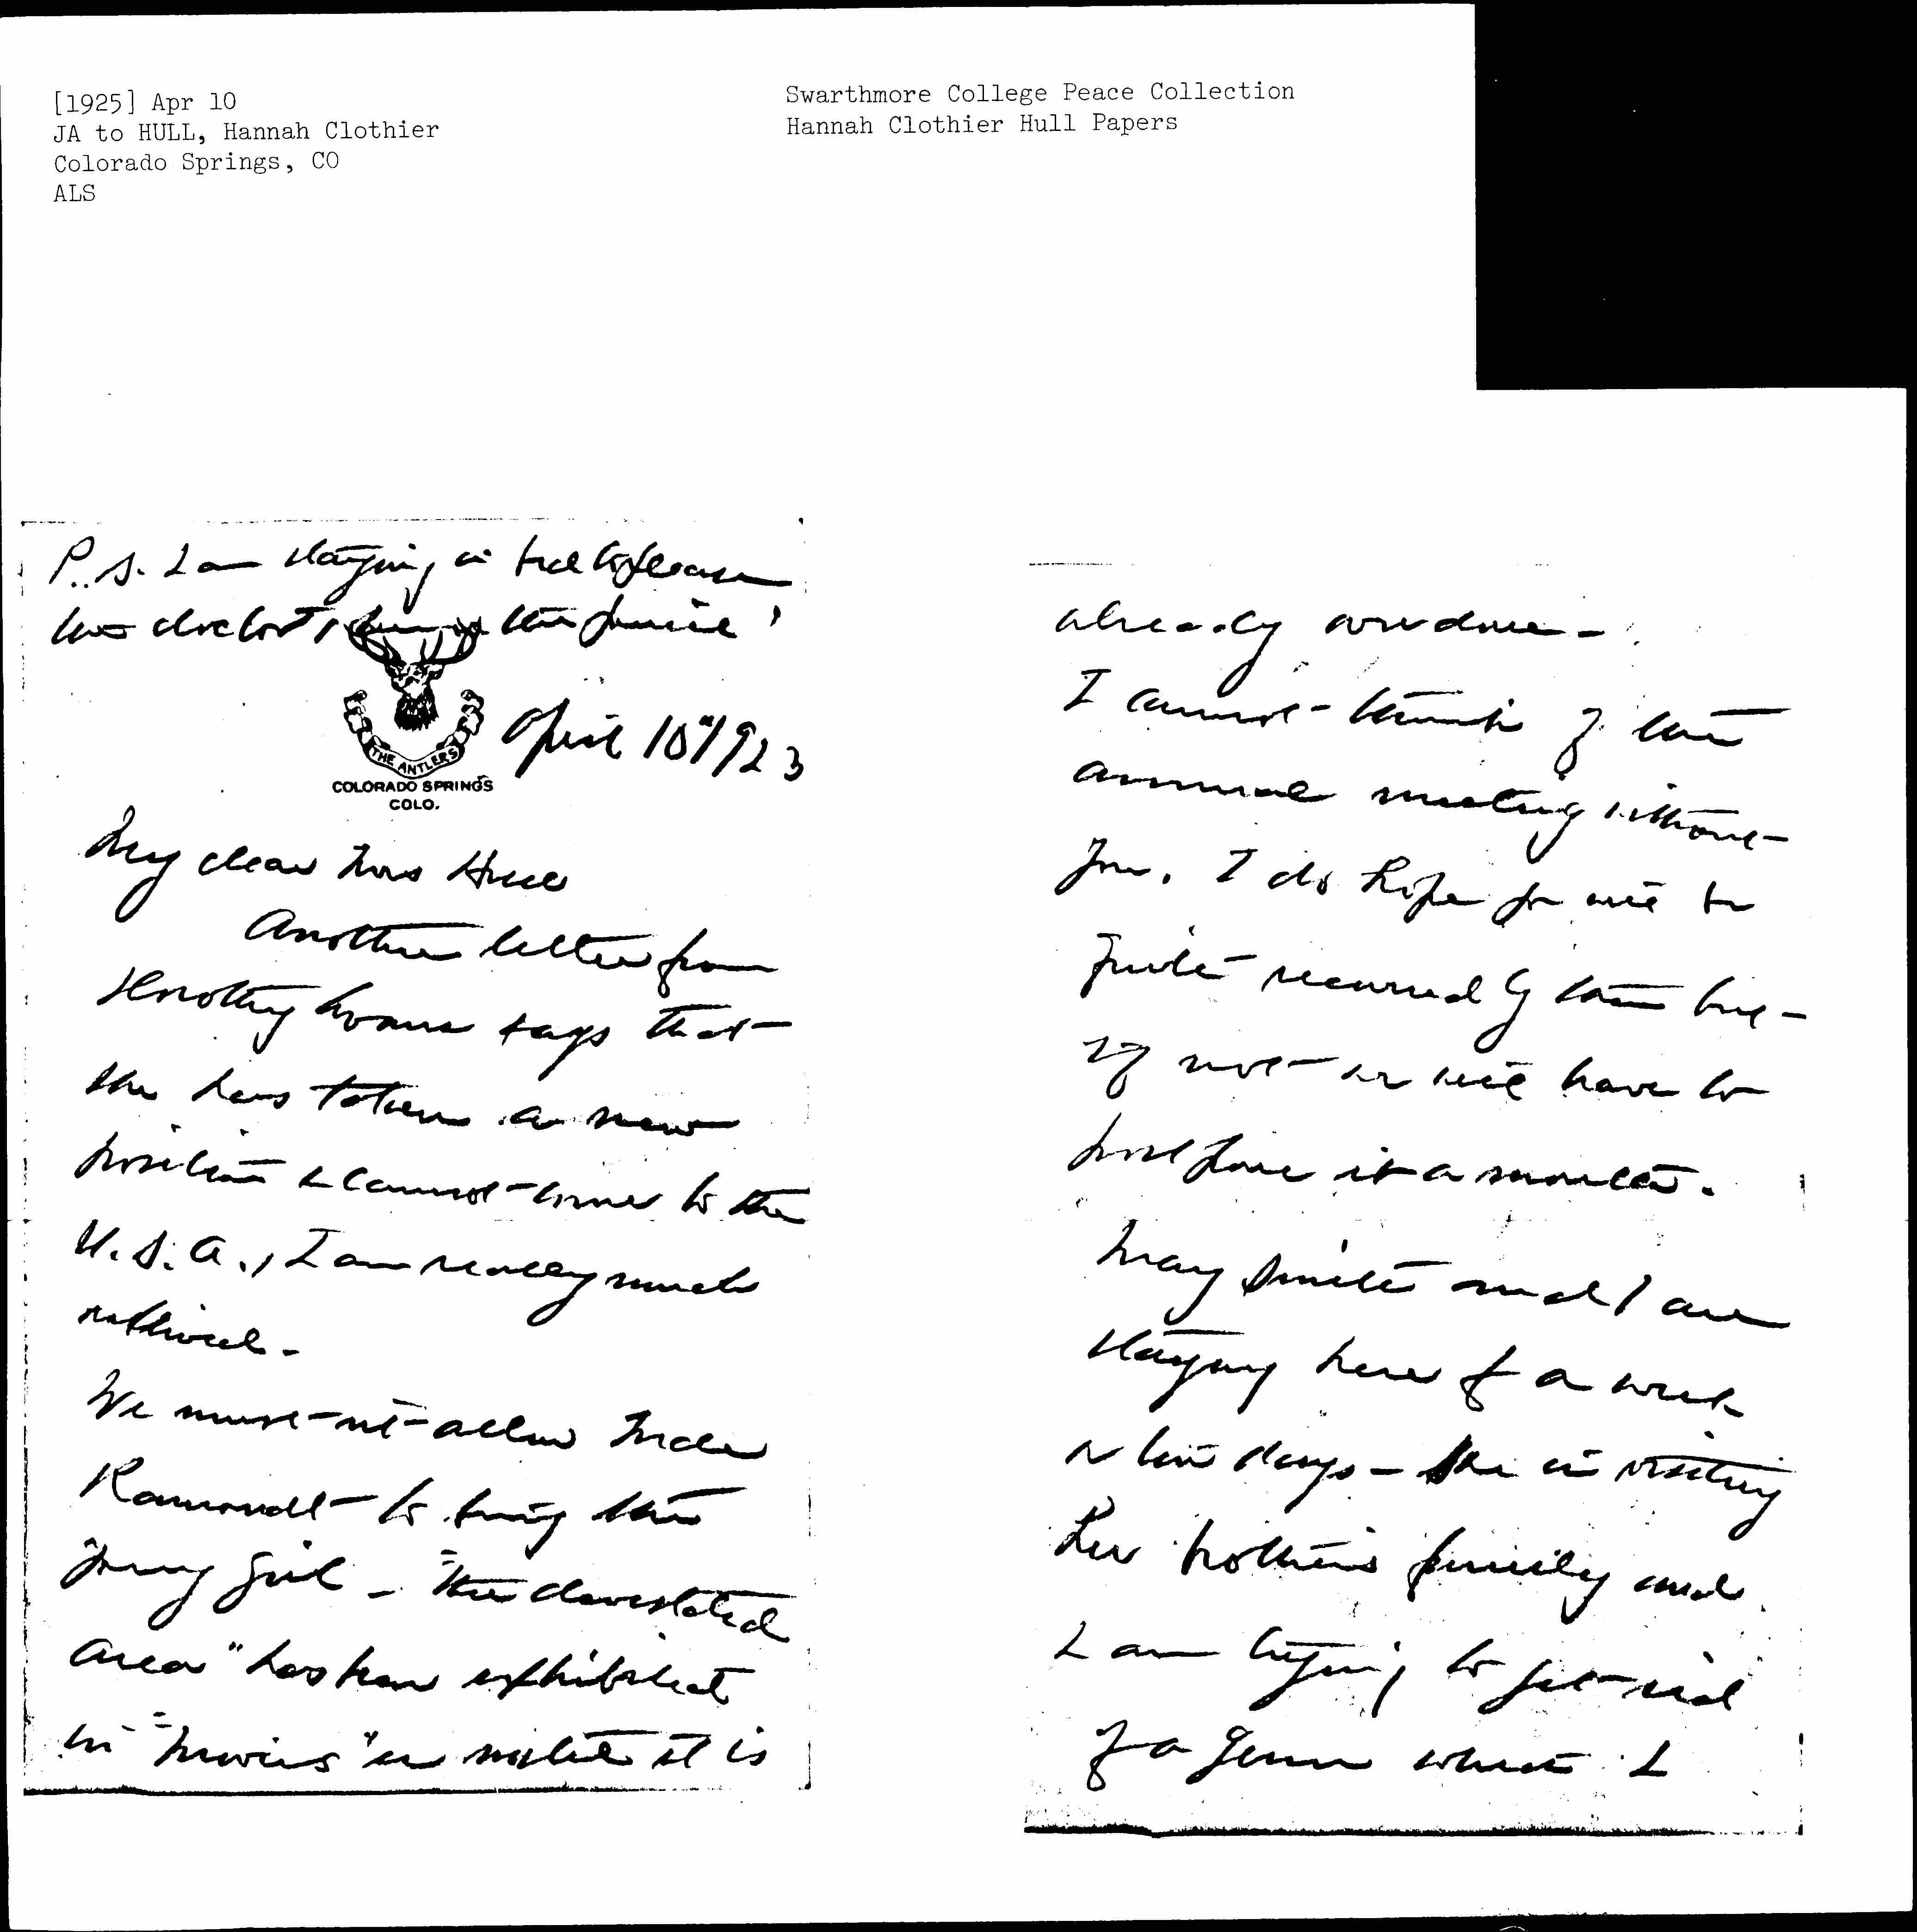 [1925] Apr 10
JA to HULL, Hannah Clothier
Colorado Springs, CO
ALS
Swarthmore College Peace Collection
Hannah Clothier Hull Papers
P.S. I am staying in bed to please
the doctor, the
THE ANTLERS
COLORADO SPRINGS
COLO.
April 10" 1923
My dear Mrs Hull
Another letter from
Dorothy Evans says that
she has taken a new
position & cannot come to the
U.S.A., I am really much
relieved -
We must not allow Mde
Ramondt to bring the
young girl - "the devastated
area" has been exhibited
in "movies" until it is
already overdone -
I cannot think of the
annual meeting without
you. I do hope you will be
quite recovered by then but -
if not we will have to
postpone it a month.
Mary Smith and I are
staying here for a week
or ten days - She is visiting
her brother's family and
I am trying to get rid
of a germ which I